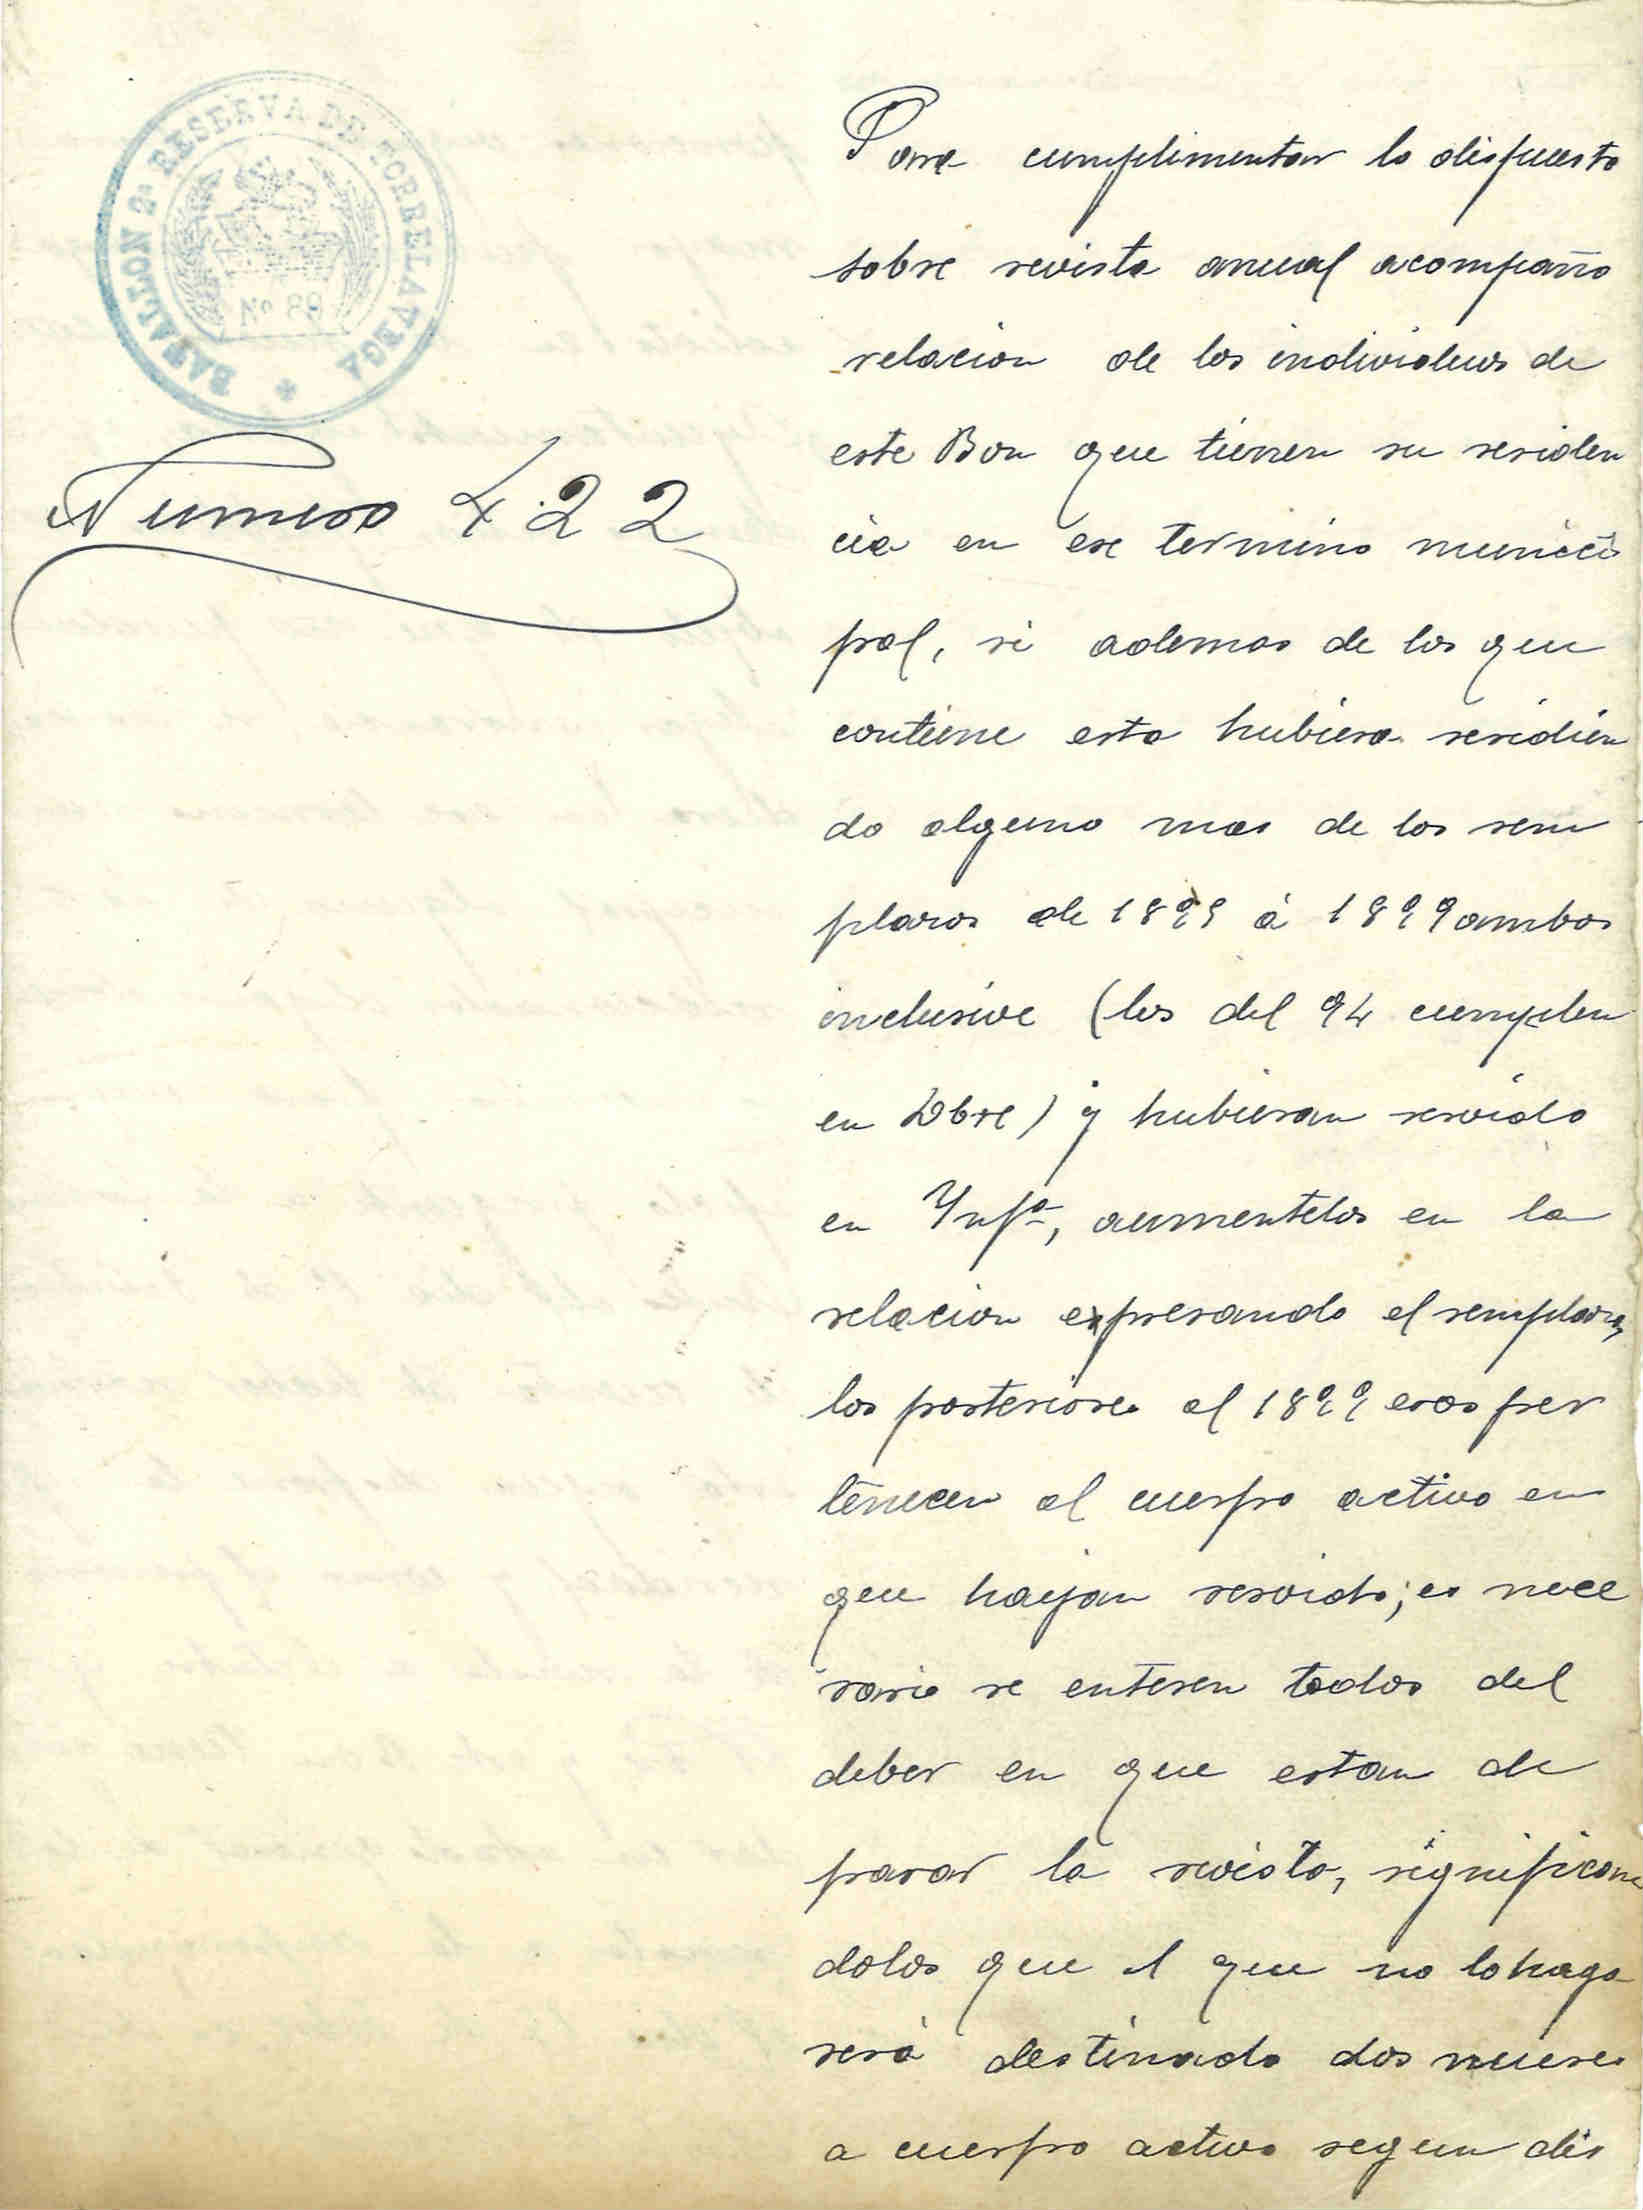 BATALLON 2ª RESERVA DE TORRELAVEGA
Nº 89
Numero 422
Para cumplimentar lo dispuesto
sobre revista anual acompaño
relacion de los individuos de
este Bon que tienen su residen
cia en ese termino munici
pal, si ademas de los que
contiene esta hubiera residien
do alguno mas de los rem
plazos de á 1899 ambos
inclusive (los del 94 cumplen
en Dbre) y hubieran servido
en Ynfª, aumentelos en la
relacion expresando el remplazo,
los posteriores al 1899 esos per
tenecen al cuerpo activo en
que hayan servido; es nece
sario se enteren todos del
deber en que estan de
pasar la revista, significan
dolos que el que no lo haga
será destinado dos meses
a cuerpo activo segun dis